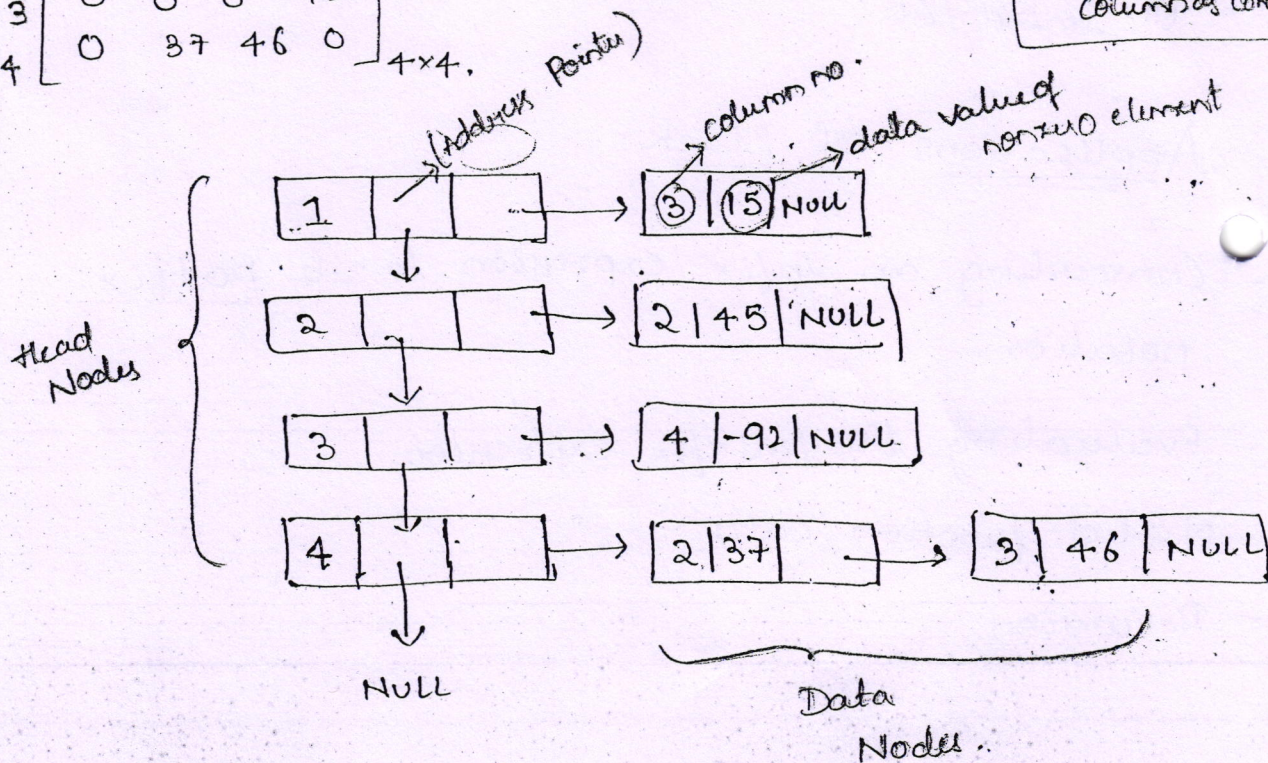 3
4 0 37 46 0 4×4.
columns
(Address Pointer)
column no.
data value of
nonzero element
1 3 15 NULL
2 2 45 NULL
Head
Nodes
3 4 -92 NULL
4 2 37 3 46 NULL
NULL
Data
Nodes.